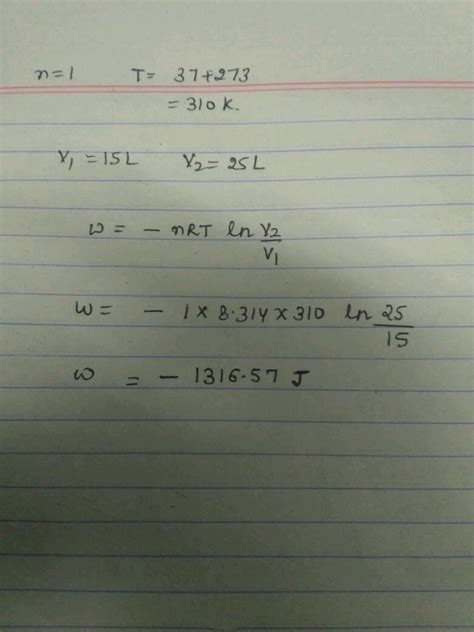 n=1 T= 37+273
= 310 K.
V1 = 15L V2 = 25L
w = - nRT ln V2/V1
w = - 1 x 8.314 x 310 ln 25/15
w = - 1316.57 J